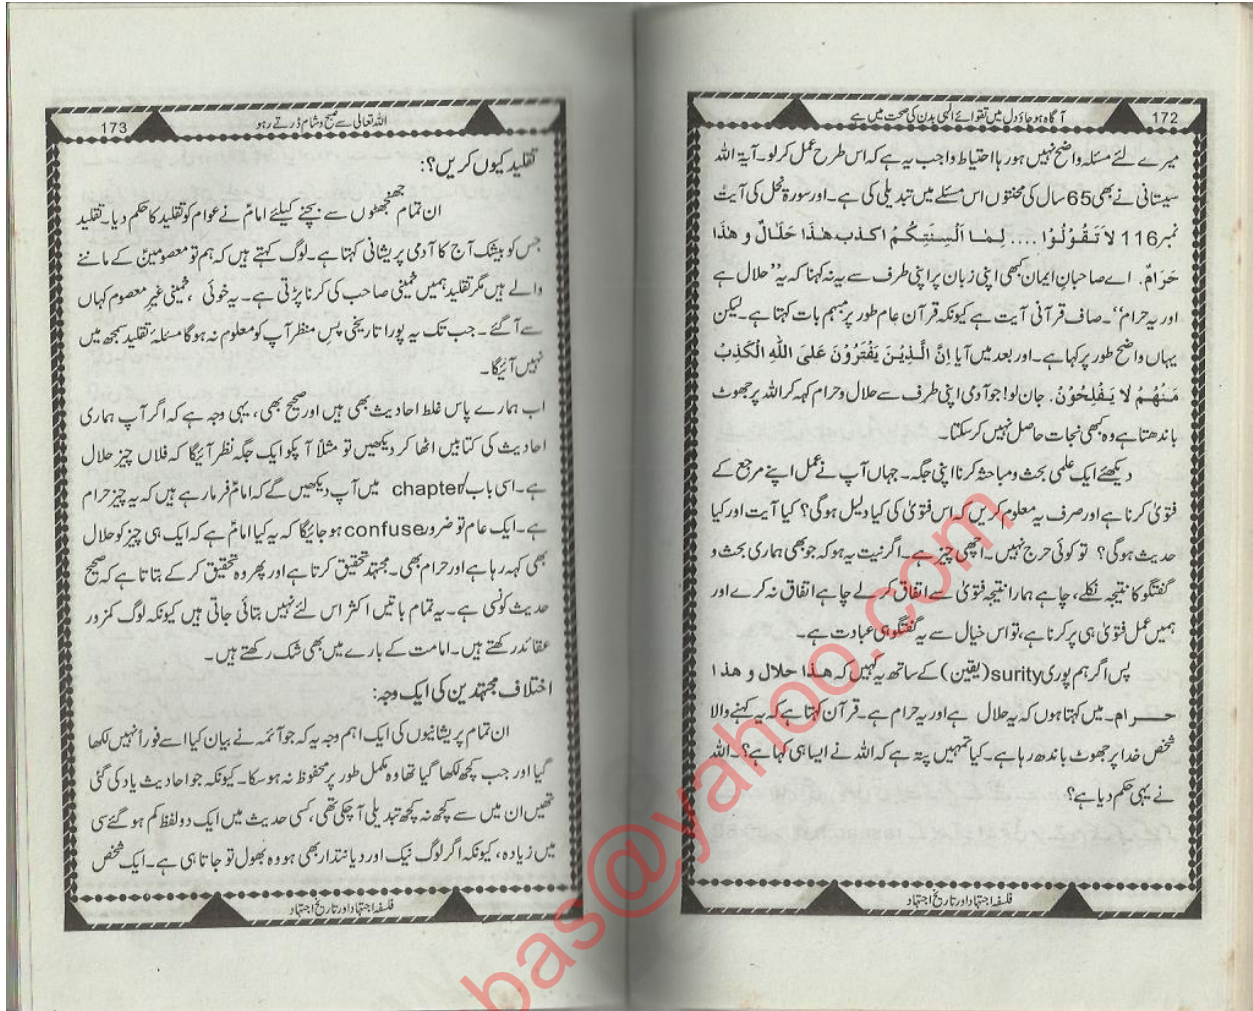 172
آگاہ ہو جاؤ دل میں تقوائے الٰہی بدن کی صحت میں ہے
میرے لئے مسئلہ واضح نہیں ہو رہا احتیاط واجب یہ ہے کہ اس طرح عمل کر لو۔ آیۃ اللہ
سیستانی نے بھی 65 سال کی محنتوں اس مسئلے میں تبدیلی کی ہے۔ اور سورۃ نحل کی آیت
نمبر 116 لاَ تَقُوْلُوْا .... لِمَا اَلْسِنَتِكُمُ اكذب هٰذَا حَلَالٌ و هٰذَا
حَرَامٌ. اے صاحبان ایمان کبھی اپنی زبان پر اپنی طرف سے یہ نہ کہنا کہ یہ ’’حلال ہے
اور یہ حرام‘‘۔ صاف قرآنی آیت ہے کیونکہ قرآن عام طور پر مبہم بات کہتا ہے۔ لیکن
یہاں واضح طور پر کہا ہے۔ اور بعد میں آیا اِنَّ الَّذِيْنَ يَفْتَرُوْنَ عَلىَ اللهِ الْكَذِبُ
مَنْهُمْ لَا يَفْلِحُوْنُ. جان لو! جو آدمی اپنی طرف سے حلال و حرام کہہ کر اللہ پر جھوٹ
باندھتا ہے وہ کبھی نجات حاصل نہیں کر سکتا۔
دیکھئے ایک علمی بحث و مباحثہ کرنا اپنی جگہ۔ جہاں آپ نے عمل اپنے مرجع کے
فتویٰ کرنا ہے اور صرف یہ معلوم کریں کہ اس فتویٰ کی کیا دلیل ہوگی؟ کیا آیت اور کیا
حدیث ہوگی؟ تو کوئی حرج نہیں۔ اچھی چیز ہے۔ اگر نیت یہ ہو کہ جو بھی ہماری بحث و
گفتگو کا نتیجہ نکلے، چاہے ہمارا نتیجہ فتویٰ سے اتفاق کر لے چاہے اتفاق نہ کرے اور
ہمیں عمل فتویٰ ہی پر کرنا ہے، تو اس خیال سے یہ گفتگو ہی عبادت ہے۔
پس اگر ہم پوری surity (یقین) کے ساتھ یہ کہیں کہ هذا حلال و هذا
حرام۔ میں کہتا ہوں کہ یہ حلال ہے اور یہ حرام ہے۔ قرآن کہتا ہے کہ یہ کہنے والا
شخص خدا پر جھوٹ باندھ رہا ہے۔ کیا تمہیں پتہ ہے کہ اللہ نے ایسا ہی کہا ہے؟۔ اللہ
نے یہی حکم دیا ہے؟
فلسفہ اجتہاد اور تاریخ اجتہاد
اللہ تعالیٰ سے صبح و شام ڈرتے رہو
173
تقلید کیوں کریں؟:
ان تمام جھنجھٹوں سے بچنے کیلئے امامؑ نے عوام کو تقلید کا حکم دیا۔ تقلید
جس کو بیشک آج کا آدمی پریشانی کہتا ہے۔ لوگ کہتے ہیں کہ ہم تو معصومینؑ کے ماننے
والے ہیں مگر تقلید ہمیں خمینی صاحب کی کرنا پڑتی ہے۔ یہ خوئی، خمینی غیر معصوم کہاں
سے آگئے۔ جب تک یہ پورا تاریخی پس منظر آپ کو معلوم نہ ہوگا مسئلہ تقلید سمجھ میں
نہیں آئیگا۔
اب ہمارے پاس غلط احادیث بھی ہیں اور صحیح بھی، یہی وجہ ہے کہ اگر آپ ہماری
احادیث کی کتابیں اٹھا کر دیکھیں تو مثلاً آپکو ایک جگہ نظر آئیگا کہ فلاں چیز حلال
ہے۔ اسی باب/chapter میں آپ دیکھیں گے کہ امامؑ فرما رہے ہیں کہ یہ چیز حرام
ہے۔ ایک عام تو ضرور confuse ہو جائیگا کہ یہ کیا امامؑ ہے کہ ایک ہی چیز کو حلال
بھی کہہ رہا ہے اور حرام بھی۔ مجتہد تحقیق کرتا ہے اور پھر وہ تحقیق کر کے بتاتا ہے کہ صحیح
حدیث کونسی ہے۔ یہ تمام باتیں اکثر اس لئے نہیں بتائی جاتی ہیں کیونکہ لوگ کمزور
عقائد رکھتے ہیں۔ امامت کے بارے میں بھی شک رکھتے ہیں۔
اختلاف مجتہدین کی ایک وجہ:
ان تمام پریشانیوں کی ایک اہم وجہ یہ کہ جو آئمہ نے بیان کیا اسے فوراً نہیں لکھا
گیا اور جب کچھ لکھا گیا تھا وہ مکمل طور پر محفوظ نہ ہو سکا۔ کیونکہ جو احادیث یاد کی گئی
تھیں ان میں سے کچھ نہ کچھ تبدیلی آچکی تھی، کسی حدیث میں ایک دو لفظ کم ہو گئے کسی
میں زیادہ، کیونکہ اگر لوگ نیک اور دیانتدار بھی ہو وہ بھول تو جاتا ہی ہے۔ ایک شخص
فلسفہ اجتہاد اور تاریخ اجتہاد
bas@yahoo.com